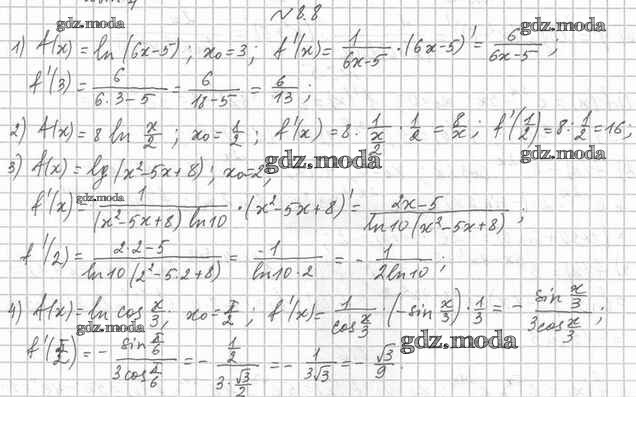 № 8.8
gdz.moda
1) f(x) = ln (6x-5); x₀ = 3; f'(x) = 1/(6x-5) · (6x-5)' = 6/(6x-5);
gdz.moda
f'(3) = 6/(6·3-5) = 6/(18-5) = 6/13;
2) f(x) = 8 ln x/2; x₀ = 1/2; f'(x) = 8 · 1/(x/2) · 1/2 = 8/x; f'(1/2) = 8 · 1/2 = 16;
gdz.moda
3) f(x) = lg (x²-5x+8); x₀ = 2;
gdz.moda
f'(x) = 1/((x²-5x+8) ln10) · (x²-5x+8)' = (2x-5)/(ln10 (x²-5x+8));
f'(2) = (2·2-5)/(ln10 (2²-5·2+8)) = -1/(ln10·2) = - 1/(2ln10);
4) f(x) = ln cos x/3; x₀ = π/2; f'(x) = 1/(cos x/3) · (-sin x/3) · 1/3 = - (sin x/3)/(3cos x/3);
gdz.moda
gdz.moda
f'(π/2) = - (sin π/6)/(3cos π/6) = - (1/2)/(3·√3/2) = - 1/(3√3) = - √3/9.